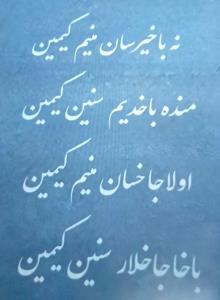 نه باخیرسان منیم کیمین
منده باخدیم سنین کیمین
اولاجاخسان منیم کیمین
باخاجاخلار سنین کیمین